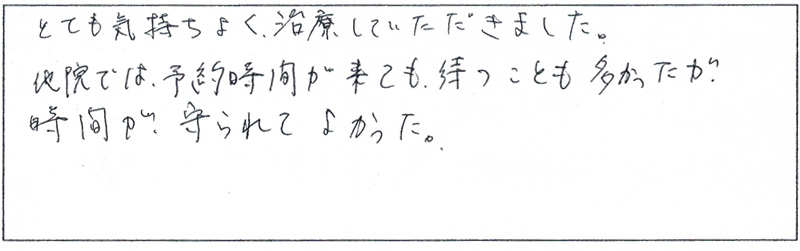 とても気持ちよく、治療していただきました。
他院では、予約時間が来ても、待つことも多かったが、
時間が守られてよかった。